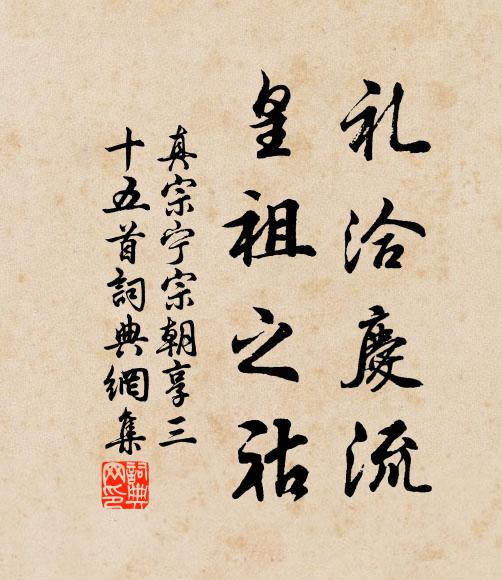 礼洽慶流
皇祖之祜
真宗宁宗朝享三
十五首詞典網集
詞典網印